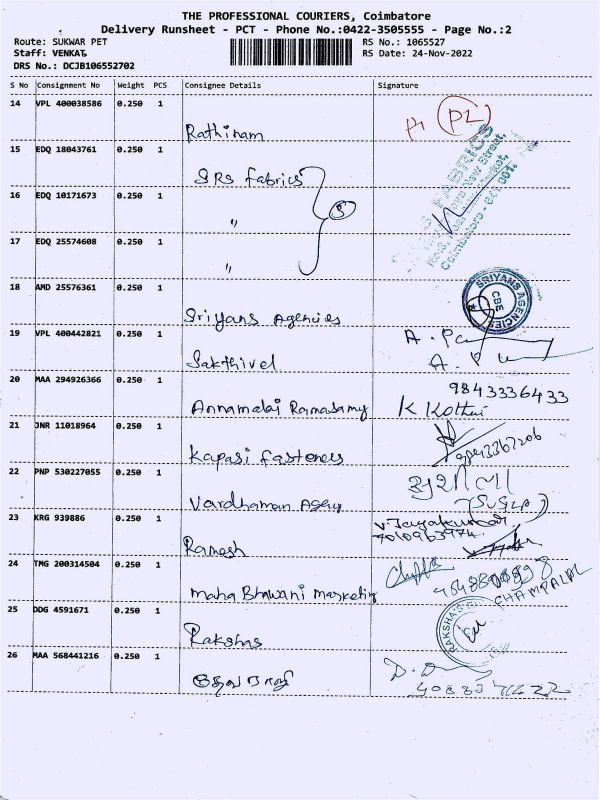 THE PROFESSIONAL COURIERS, Coimbatore
Delivery Runsheet - PCT - Phone No.:0422-3505555 - Page No.:2
Route: SUKWAR PET RS No.: 1065527
Staff: VENKAT RS Date: 24-Nov-2022
DRS No.: DCJB106552702
S No Consignment No Weight PCS Consignee Details Signature
14 VPL 400038586 0.250 1 Rathinam PL
15 EDQ 18043761 0.250 1 SRS fabrics
16 EDQ 10171673 0.250 1 " 
17 EDQ 25574608 0.250 1 "
FABRICS
Coimbatore - 641 001.
18 AMD 25576361 0.250 1 Sriyans Agencies
SRIYANS AGENCIES
CBE
19 VPL 400442821 0.250 1 Sakthivel
20 MAA 294926366 0.250 1 Annamalai Ramasamy K Kothari
9843336433
21 JNR 11018964 0.250 1 Kapasi fasteners
22 PNP 530227055 0.250 1 Vardhaman Agency
23 KRG 939886 0.250 1 Ramesh V Jayakumar
7010963974
24 TMG 200314504 0.250 1 Maha Bhawani Marketing
CHAMPALAL
25 DDG 4591671 0.250 1 Rakshas
RAKSHA'S
26 MAA 568441216 0.250 1 தேவராஜ்